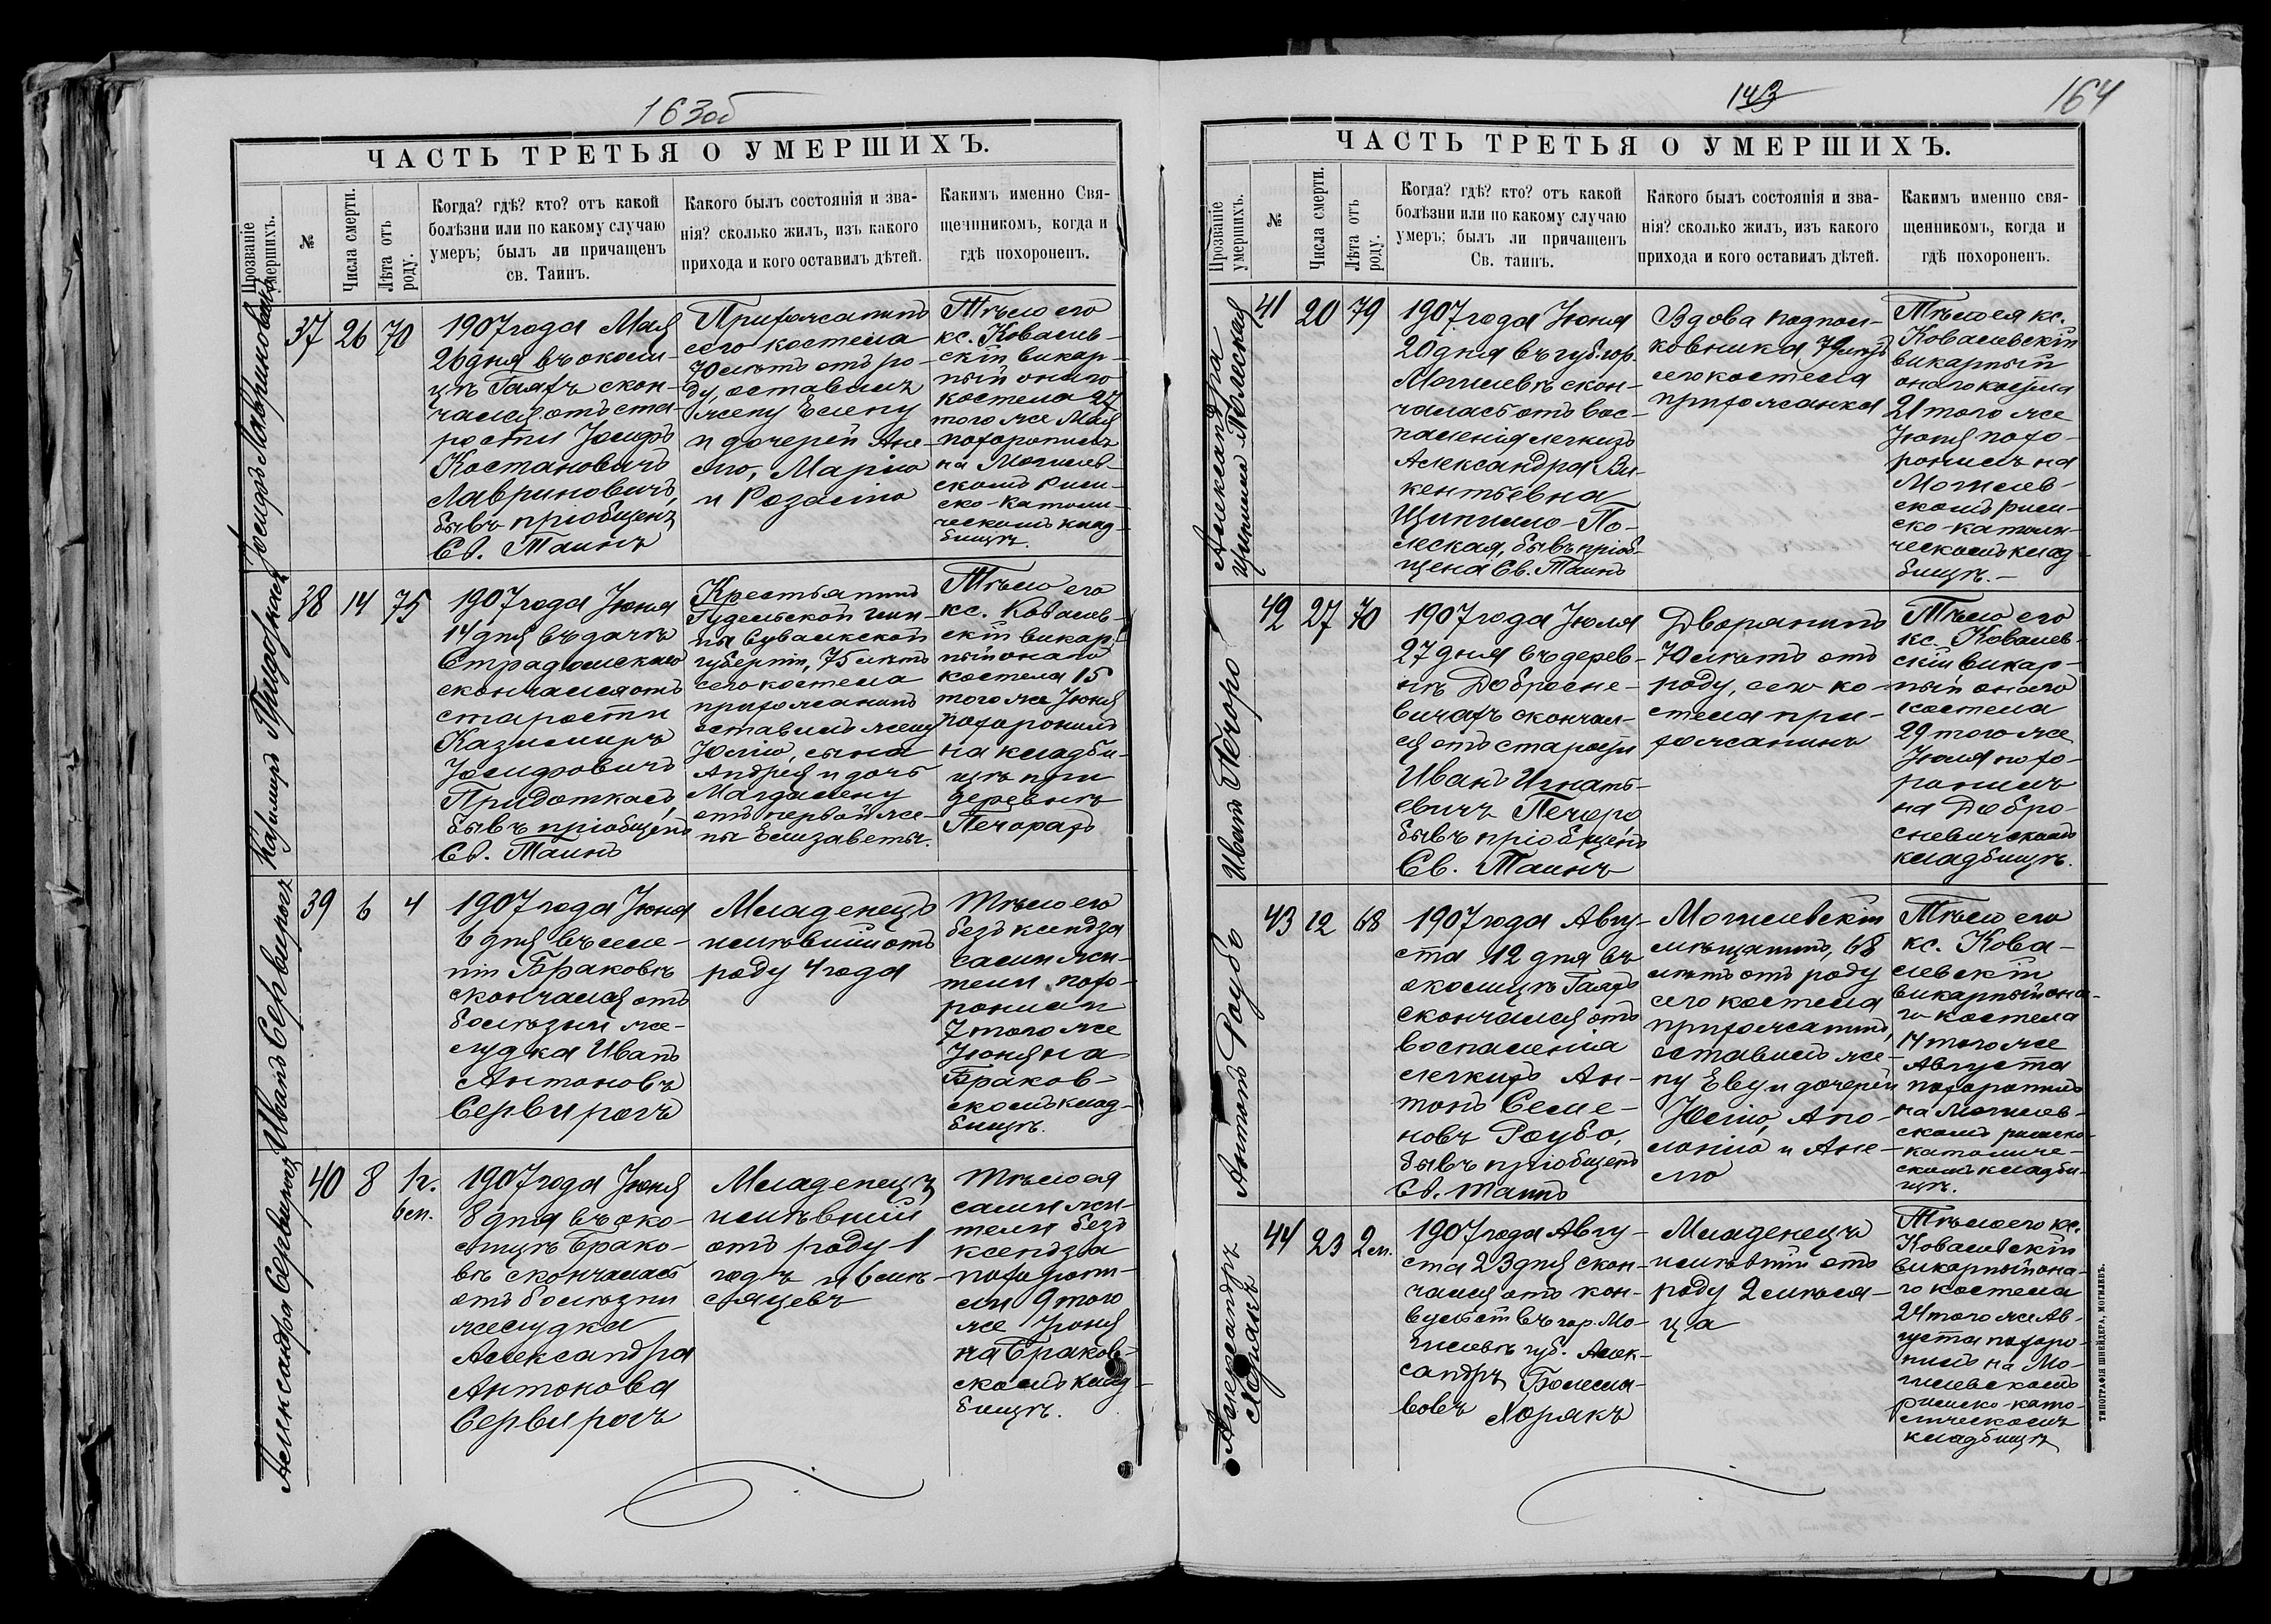 163об
ЧАСТЬ ТРЕТЬЯ О УМЕРШИХЪ.
Прозваніе умершихъ.
№
Числа смерти.
Лѣта отъ роду.
Когда? гдѣ? кто? отъ какой
болѣзни или по какому случаю
умеръ; былъ ли причащенъ
св. Таинъ.
Какого былъ состоянія и зва-
нія? сколько жилъ, изъ какого
прихода и кого оставилъ дѣтей.
Какимъ именно Свя-
щенникомъ, когда и
гдѣ похороненъ.
Іосифъ Лавриновичъ
37
26
70
1907 года Мая
26 дня въ околи-
цѣ Гаяхъ скон-
чался отъ ста-
рости Іосифъ
Костановичъ
Лавриновичъ,
бывъ пріобщенъ
Св. Таинъ
Прихожанинъ
сего костела
70 лѣтъ отъ ро-
ду, оставилъ
жену Елену
и дочерей Ане-
лю, Марію
и Розалію
Тѣло его
кс. Ковалев-
скій викар-
ный онаго
костела 27
того же Мая
похоронилъ
на Могилев-
скомъ Рим-
ско-Католи-
ческомъ клад-
бищѣ.
Казимиръ Придоткасъ
38
14
75
1907 года Іюня
14 дня въ дачѣ
Страдомскаго
скончался отъ
старости
Казимиръ
Іосифовичъ
Придоткасъ,
бывъ пріобщенъ
Св. Таинъ
Крестьянинъ
Гудельской гми-
ны Сувалкской
губерніи, 75 лѣтъ
сего костела
прихожанинъ
оставилъ жену
Юлію, сына
Андрея и дочь
Магдалену
отъ первой же-
ны Елизаветы.
Тѣло его
кс. Ковалев-
скій викар-
ный онаго
костела 15
того же Іюня
похоронилъ
на кладби-
щѣ при
деревнѣ
Печорахъ
Иванъ Сервирогъ
39
6
4
1907 года Іюня
6 дня въ име-
ніи Браковѣ
скончался отъ
болѣзни же-
лудка Иванъ
Антоновъ
Сервирогъ
Младенецъ
имѣвшій отъ
роду 4 года
Тѣло его
безъ ксендза
сами жи-
тели похо-
ронили
7 того же
Іюня на
Браков-
скомъ клад-
бищѣ.
Александра Сервирогъ
40
8
1 г.
6 м.
1907 года Іюня
8 дня въ око-
лицѣ Брако-
вѣ скончалась
отъ болѣзни
желудка
Александра
Антонова
Сервирогъ
Младенецъ
имѣвшій
отъ роду 1
годъ и 6 мѣ-
сяцевъ
Тѣло ея
сами жи-
тели безъ
ксендза
похорони-
ли 9 того
же Іюня
на Браков-
скомъ клад-
бищѣ.
143
164
ЧАСТЬ ТРЕТЬЯ О УМЕРШИХЪ.
Прозваніе умершихъ.
№
Числа смерти.
Лѣта отъ роду.
Когда? гдѣ? кто? отъ какой
болѣзни или по какому случаю
умеръ; былъ ли причащенъ
Св. таинъ.
Какого былъ состоянія и зва-
нія? сколько жилъ, изъ какого
прихода и кого оставилъ дѣтей.
Какимъ именно свя-
щенникомъ, когда и
гдѣ похороненъ.
Александра
Циппило Полеская
41
20
79
1907 года Іюня
20 дня въ губ. гор.
Могилевѣ скон-
чалась отъ вос-
паленія легкихъ
Александра Ви-
кентьевна
Циппило-По-
леская, бывъ пріоб-
щена Св. Таинъ
Вдова подпол-
ковника 79 лѣтъ
сего костела
прихожанка
Тѣло ея кс.
Ковалевскій
викарный
онаго костела
21 того же
Іюня похо-
ронилъ на
Могилев-
скомъ рим-
ско-католи-
ческомъ клад-
бищѣ.-
Иванъ Печоро
42
27
70
1907 года Іюля
27 дня въ дерев-
нѣ Добросне-
вичахъ скончал-
ся отъ старости
Иванъ Игнать-
евичъ Печоро
бывъ пріобщенъ
Св. Таинъ
Дворянинъ
70 лѣтъ отъ
роду, сего ко-
стела при-
хожанинъ
Тѣло его
кс. Ковалев-
скій викар-
ный онаго
костела
29 того же
Іюля похо-
ронилъ
на Добро-
сневичскомъ
кладбищѣ.
Антонъ Роубо
43
12
68
1907 года Авгу-
ста 12 дня въ
околицѣ Гаяхъ
скончался отъ
воспаленія
легкихъ Ан-
тонъ Семе-
новъ Роубо,
бывъ пріобщенъ
Св. таинъ
Могилевскій
мѣщанинъ, 68
лѣтъ отъ роду
сего костела
прихожанинъ,
оставилъ же-
ну Еву и дочерей
Юлію, Апо-
лонію и Ане-
лю
Тѣло его
кс. Кова-
левскій
викарный она-
го костела
14 того же
Августа
похоронилъ
на Могилев-
скомъ римско-
католиче-
скомъ кладби-
щѣ.
Александръ
Хорякъ
44
23
2 м.
1907 года Авгу-
ста 23 дня скон-
чался отъ кон-
вульсіи въ гор. Мо-
гилевѣ губ. Алек-
сандръ Болесла-
вовъ Хорякъ
Младенецъ
имѣвшій отъ
роду 2 мѣся-
ца
Тѣло его кс.
Ковалевскій
викарный она-
го костела
24 того же Ав-
густа похоро-
нилъ на Мо-
гилевскомъ
римско-като-
лическомъ
кладбищѣ
ТИПОГРАФІЯ ШНЕЙДЕРА, МОГИЛЕВЪ.